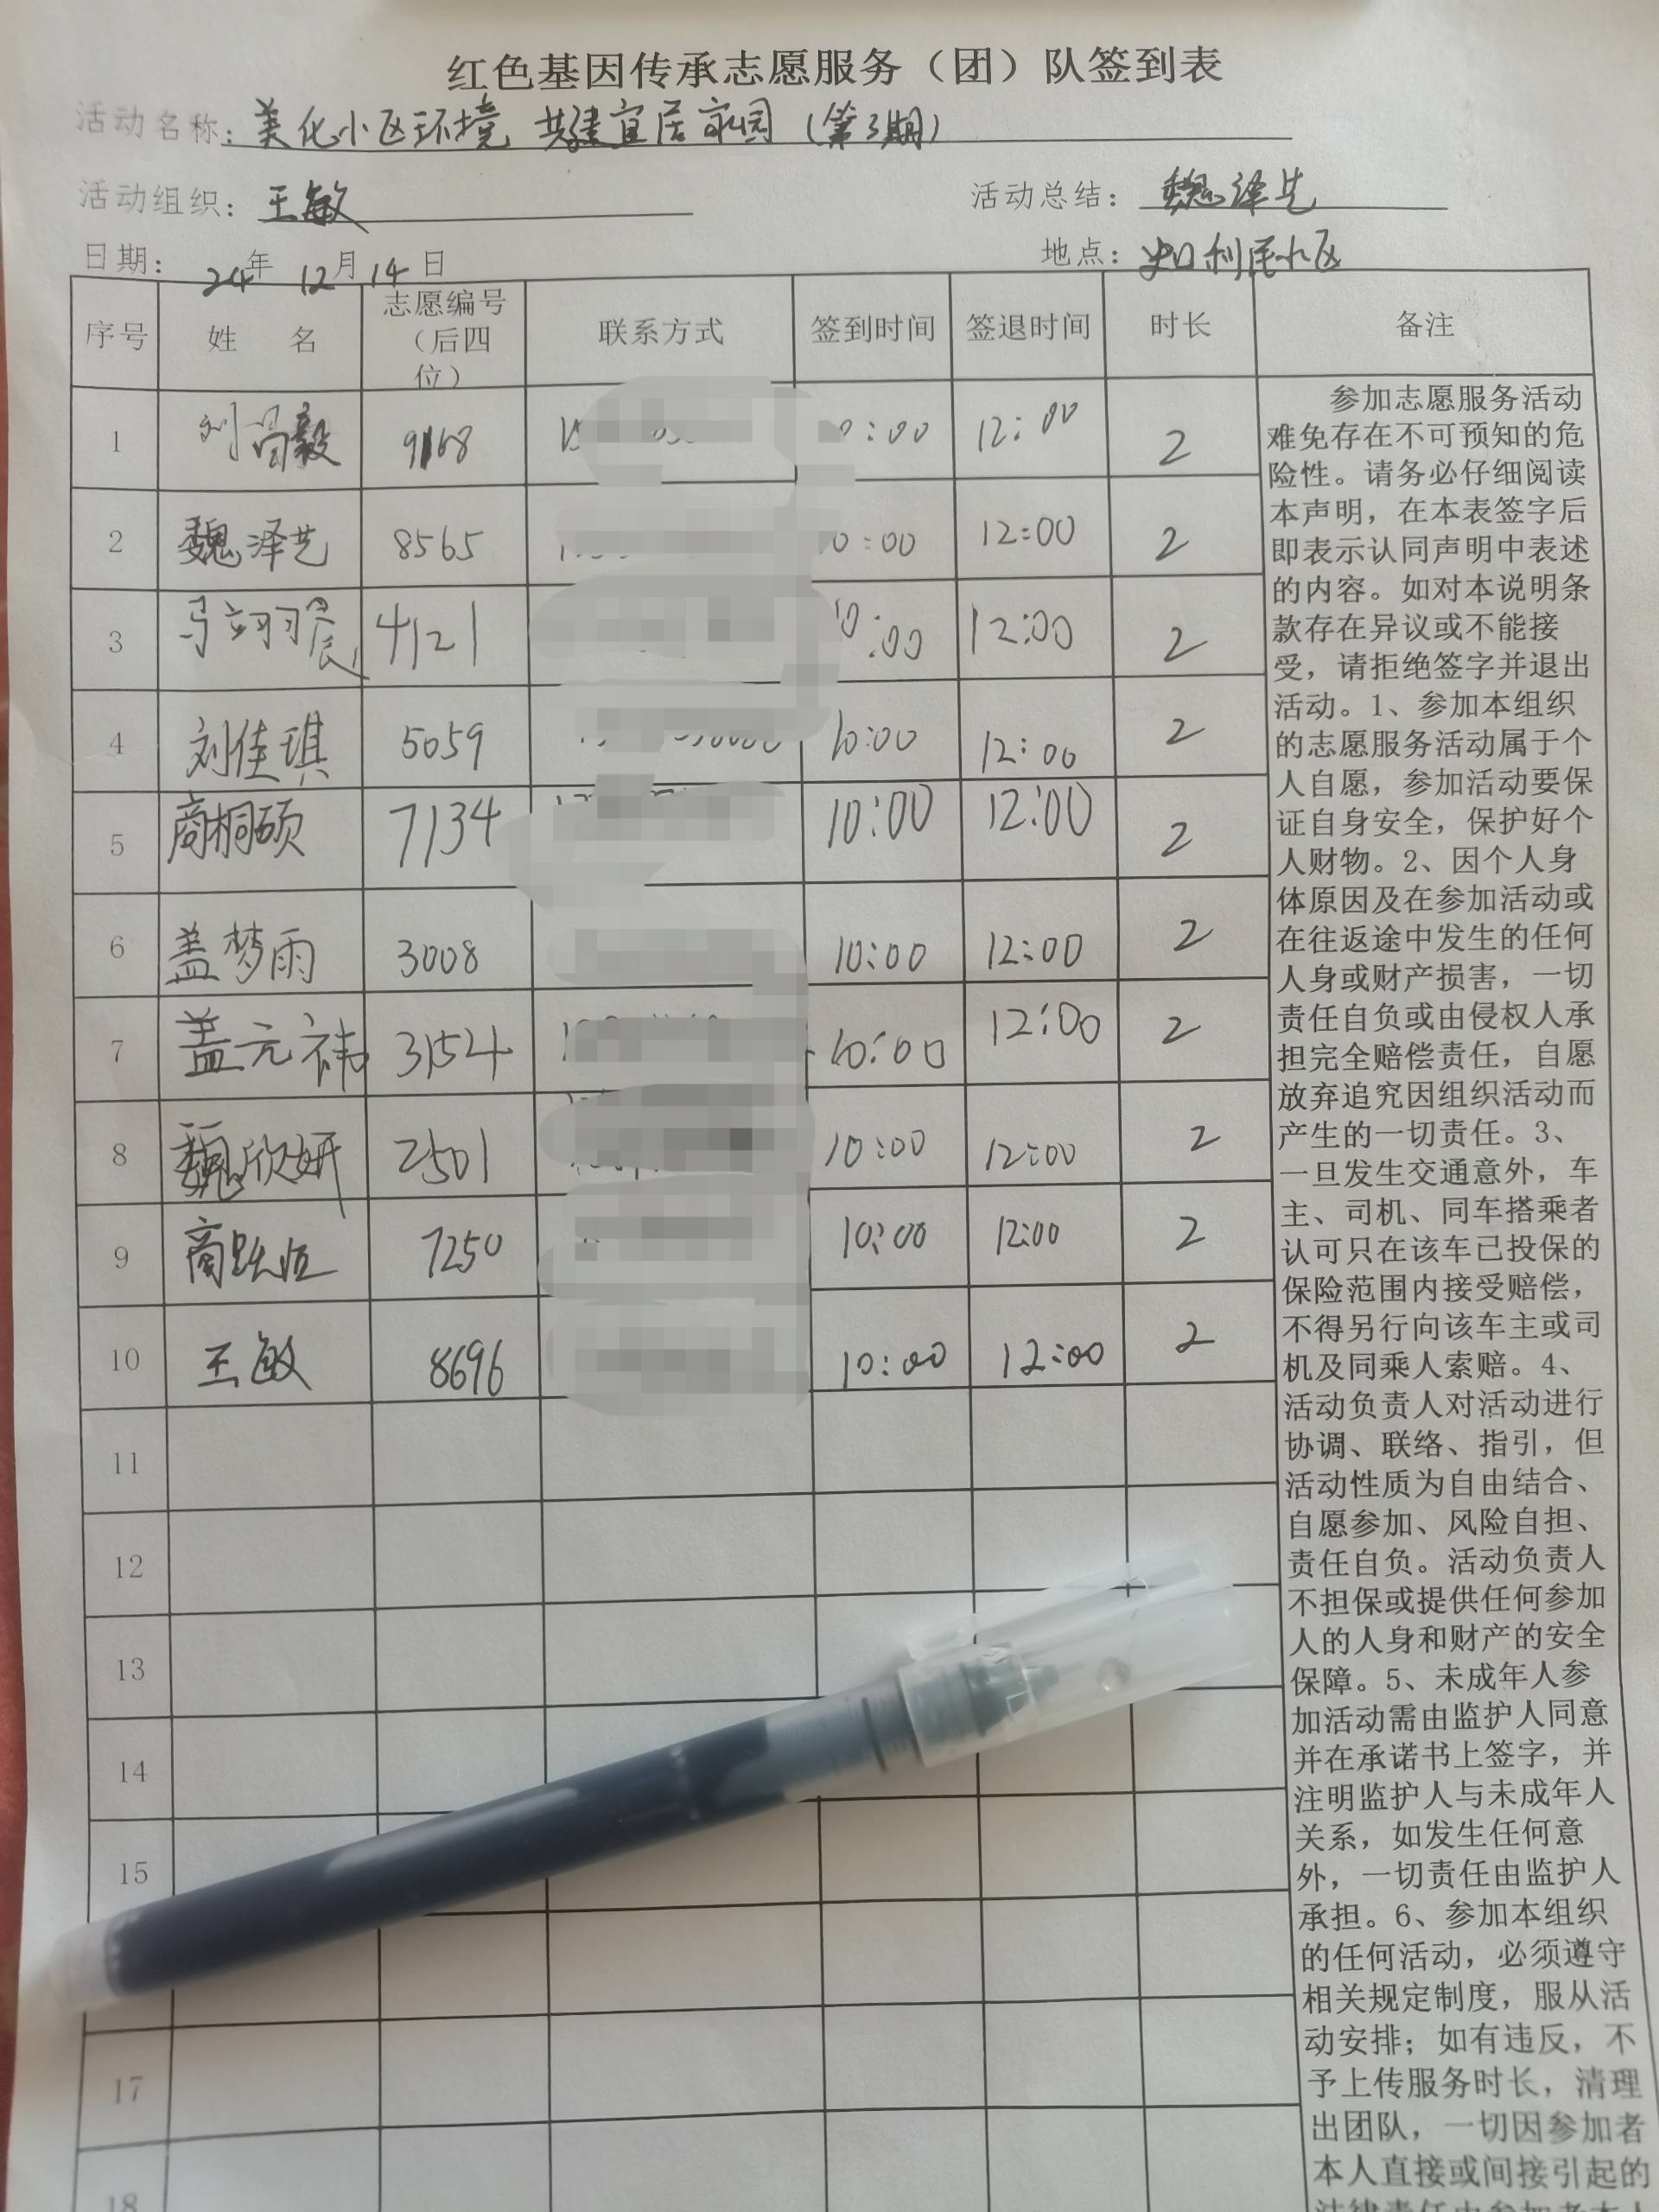 红色基因传承志愿服务（团）队签到表
活动名称：美化小区环境 共建宜居家园（第3期）
活动组织：王敏 活动总结：魏泽艺
日期：24年12月14日 地点：史口利民小区
序号 姓 名 志愿编号（后四位） 联系方式 签到时间 签退时间 时长 备注
1 刘尚毅 9168 0:00 12:00 2
2 魏泽艺 8565 10:00 12:00 2
3 马翊宸 4121 10:00 12:00 2
4 刘佳琪 5059 10:00 12:00 2
5 商桐硕 7134 10:00 12:00 2
6 盖梦雨 3008 10:00 12:00 2
7 盖元祎 3154 10:00 12:00 2
8 魏欣妍 2501 10:00 12:00 2
9 商 7250 10:00 12:00 2
10 王敏 8696 10:00 12:00 2
11
12
13
14
15
17
18
参加志愿服务活动
难免存在不可预知的危
险性。请务必仔细阅读
本声明，在本表签字后
即表示认同声明中表述
的内容。如对本说明条
款存在异议或不能接
受，请拒绝签字并退出
活动。1、参加本组织
的志愿服务活动属于个
人自愿，参加活动要保
证自身安全，保护好个
人财物。2、因个人身
体原因及在参加活动或
在往返途中发生的任何
人身或财产损害，一切
责任自负或由侵权人承
担完全赔偿责任，自愿
放弃追究因组织活动而
产生的一切责任。3、
一旦发生交通意外，车
主、司机、同车搭乘者
认可只在该车已投保的
保险范围内接受赔偿，
不得另行向该车主或司
机及同乘人索赔。4、
活动负责人对活动进行
协调、联络、指引，但
活动性质为自由结合、
自愿参加、风险自担、
责任自负。活动负责人
不担保或提供任何参加
人的人身和财产的安全
保障。5、未成年人参
加活动需由监护人同意
并在承诺书上签字，并
注明监护人与未成年人
关系，如发生任何意
外，一切责任由监护人
承担。6、参加本组织
的任何活动，必须遵守
相关规定制度，服从活
动安排；如有违反，不
予上传服务时长，清理
出团队，一切因参加者
本人直接或间接引起的
法律责任由参加者本人